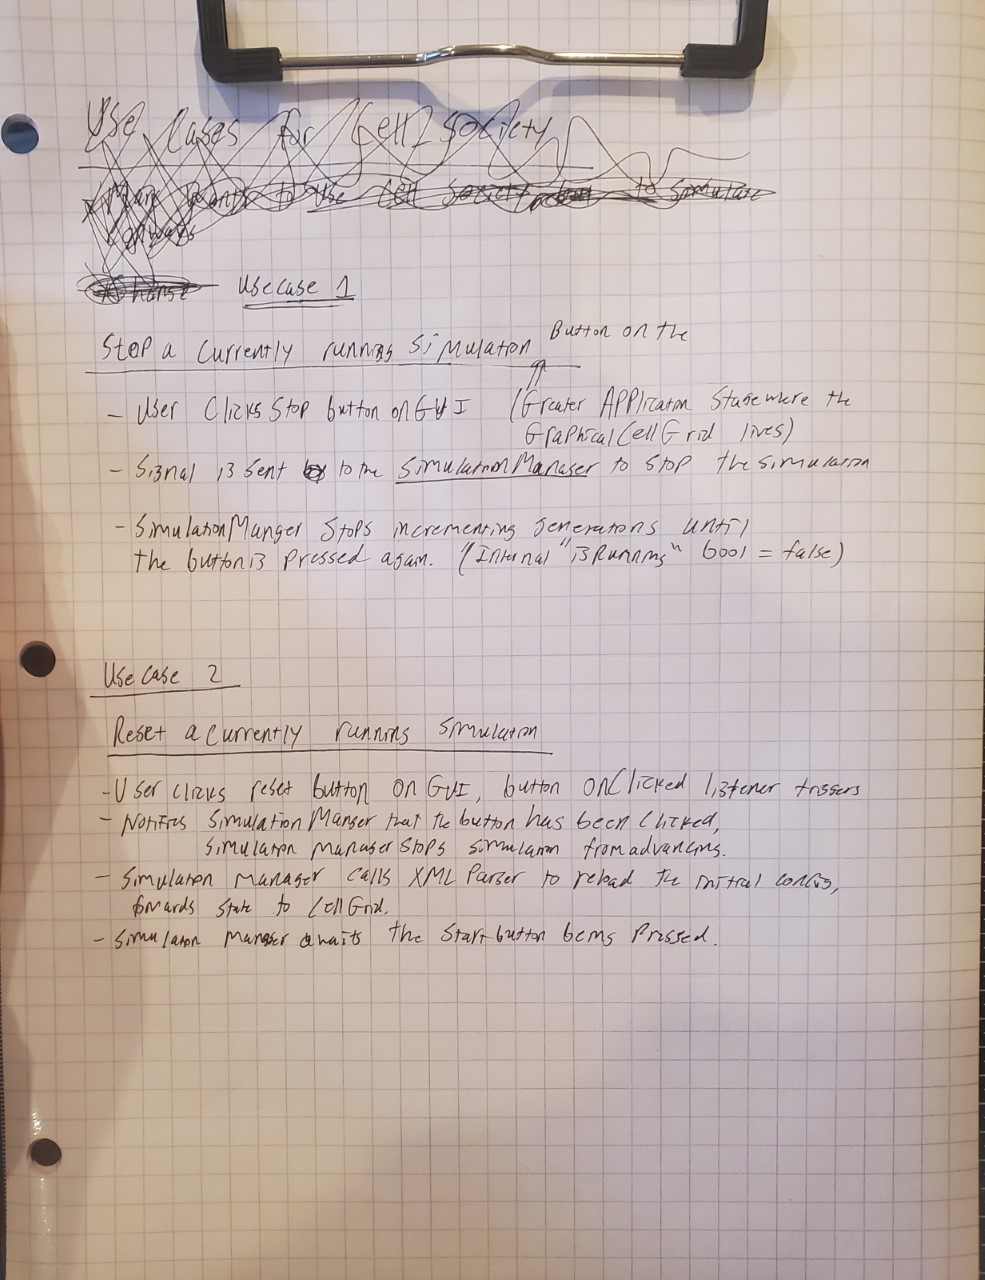 Use Cases for Cell Society
to use Cell Society to simulate
Use case 1
Stop a currently running simulation
Button on the
- User Clicks Stop button on GUI (Greater Application Stage where the
GraphicalCellGrid lives)
- Signal is sent to the SimulationManager to stop the simulation
- SimulationManger Stops incrementing generations until
the button is pressed again. (Internal "isRunning" bool = false)
Use case 2
Reset a currently running simulation
- User clicks reset button on GUI, button onClicked listener triggers
- Notifies SimulationManger that the button has been clicked,
Simulation manager stops simulation from advancing.
- Simulation manager calls XML Parser to reload the initial config,
forwards state to CellGrid.
- Simulation Manager awaits the start button being pressed.